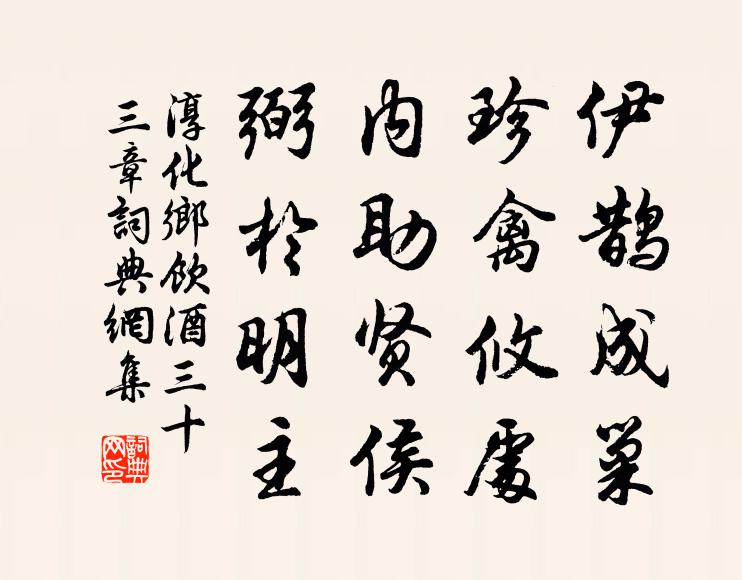 伊鵲成巢
珍禽攸處
内助贤侯
弼於明主
淳化鄉飲酒三十
三章詞典網集
詞典
网印